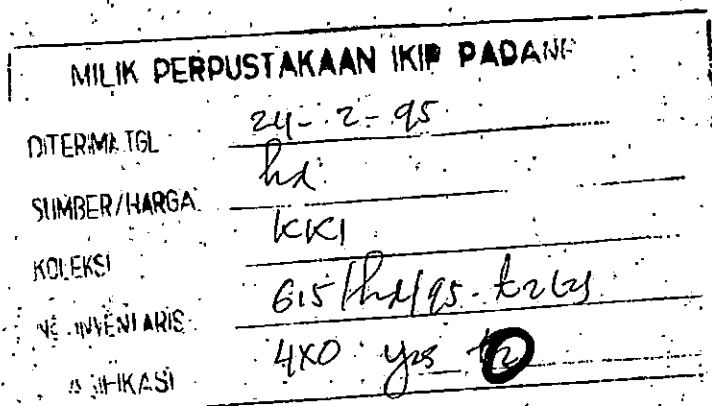 MILIK PERPUSTAKAAN IKIP PADANG
DITERIMA TGL 24-2-95
SUMBER/HARGA hd
KOLEKSI KKI
NO. INVENTARIS 615/hd/95-
KLASIFIKASI 4X0